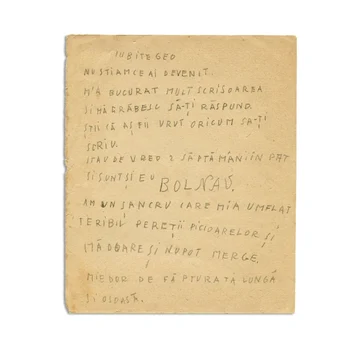 IUBITE GEO
NU ȘTIAM CE AI DEVENIT.
M'A BUCURAT MULT SCRISOAREA
ȘI MĂ GRĂBESC SĂ-ȚI RĂSPUND.
ȘTII CĂ AȘ FI VRUT ORICUM SĂ-ȚI
SCRIU.
STAU DE VREO 2 SĂPTĂMÂNI ÎN PAT
ȘI SUNT ȘI EU BOLNAV.
AM UN ȘANCRU CARE MI-A UMFLAT
TERIBIL PEREȚII PICIOARELOR ȘI
MĂ DOARE ȘI NU POT MERGE.
MI E DOR DE FĂPTURA TA LUNGĂ
ȘI OSOASĂ.